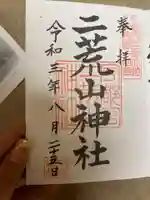 奉拝
二荒山神社
令和三年八月二十五日